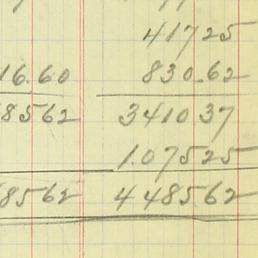 41725
16.60 830.62
8562 341037
1.07525
8562 448562